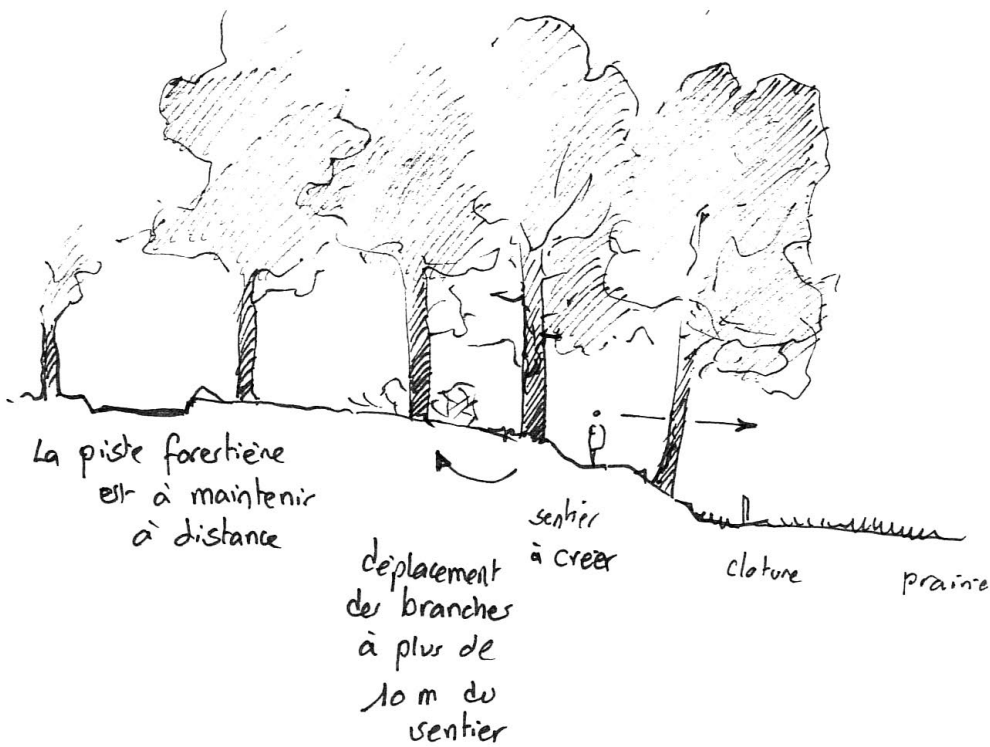 La piste forestière
est à maintenir
à distance
déplacement
des branches
à plus de
10 m du
sentier
sentier
à creer
cloture
prairie